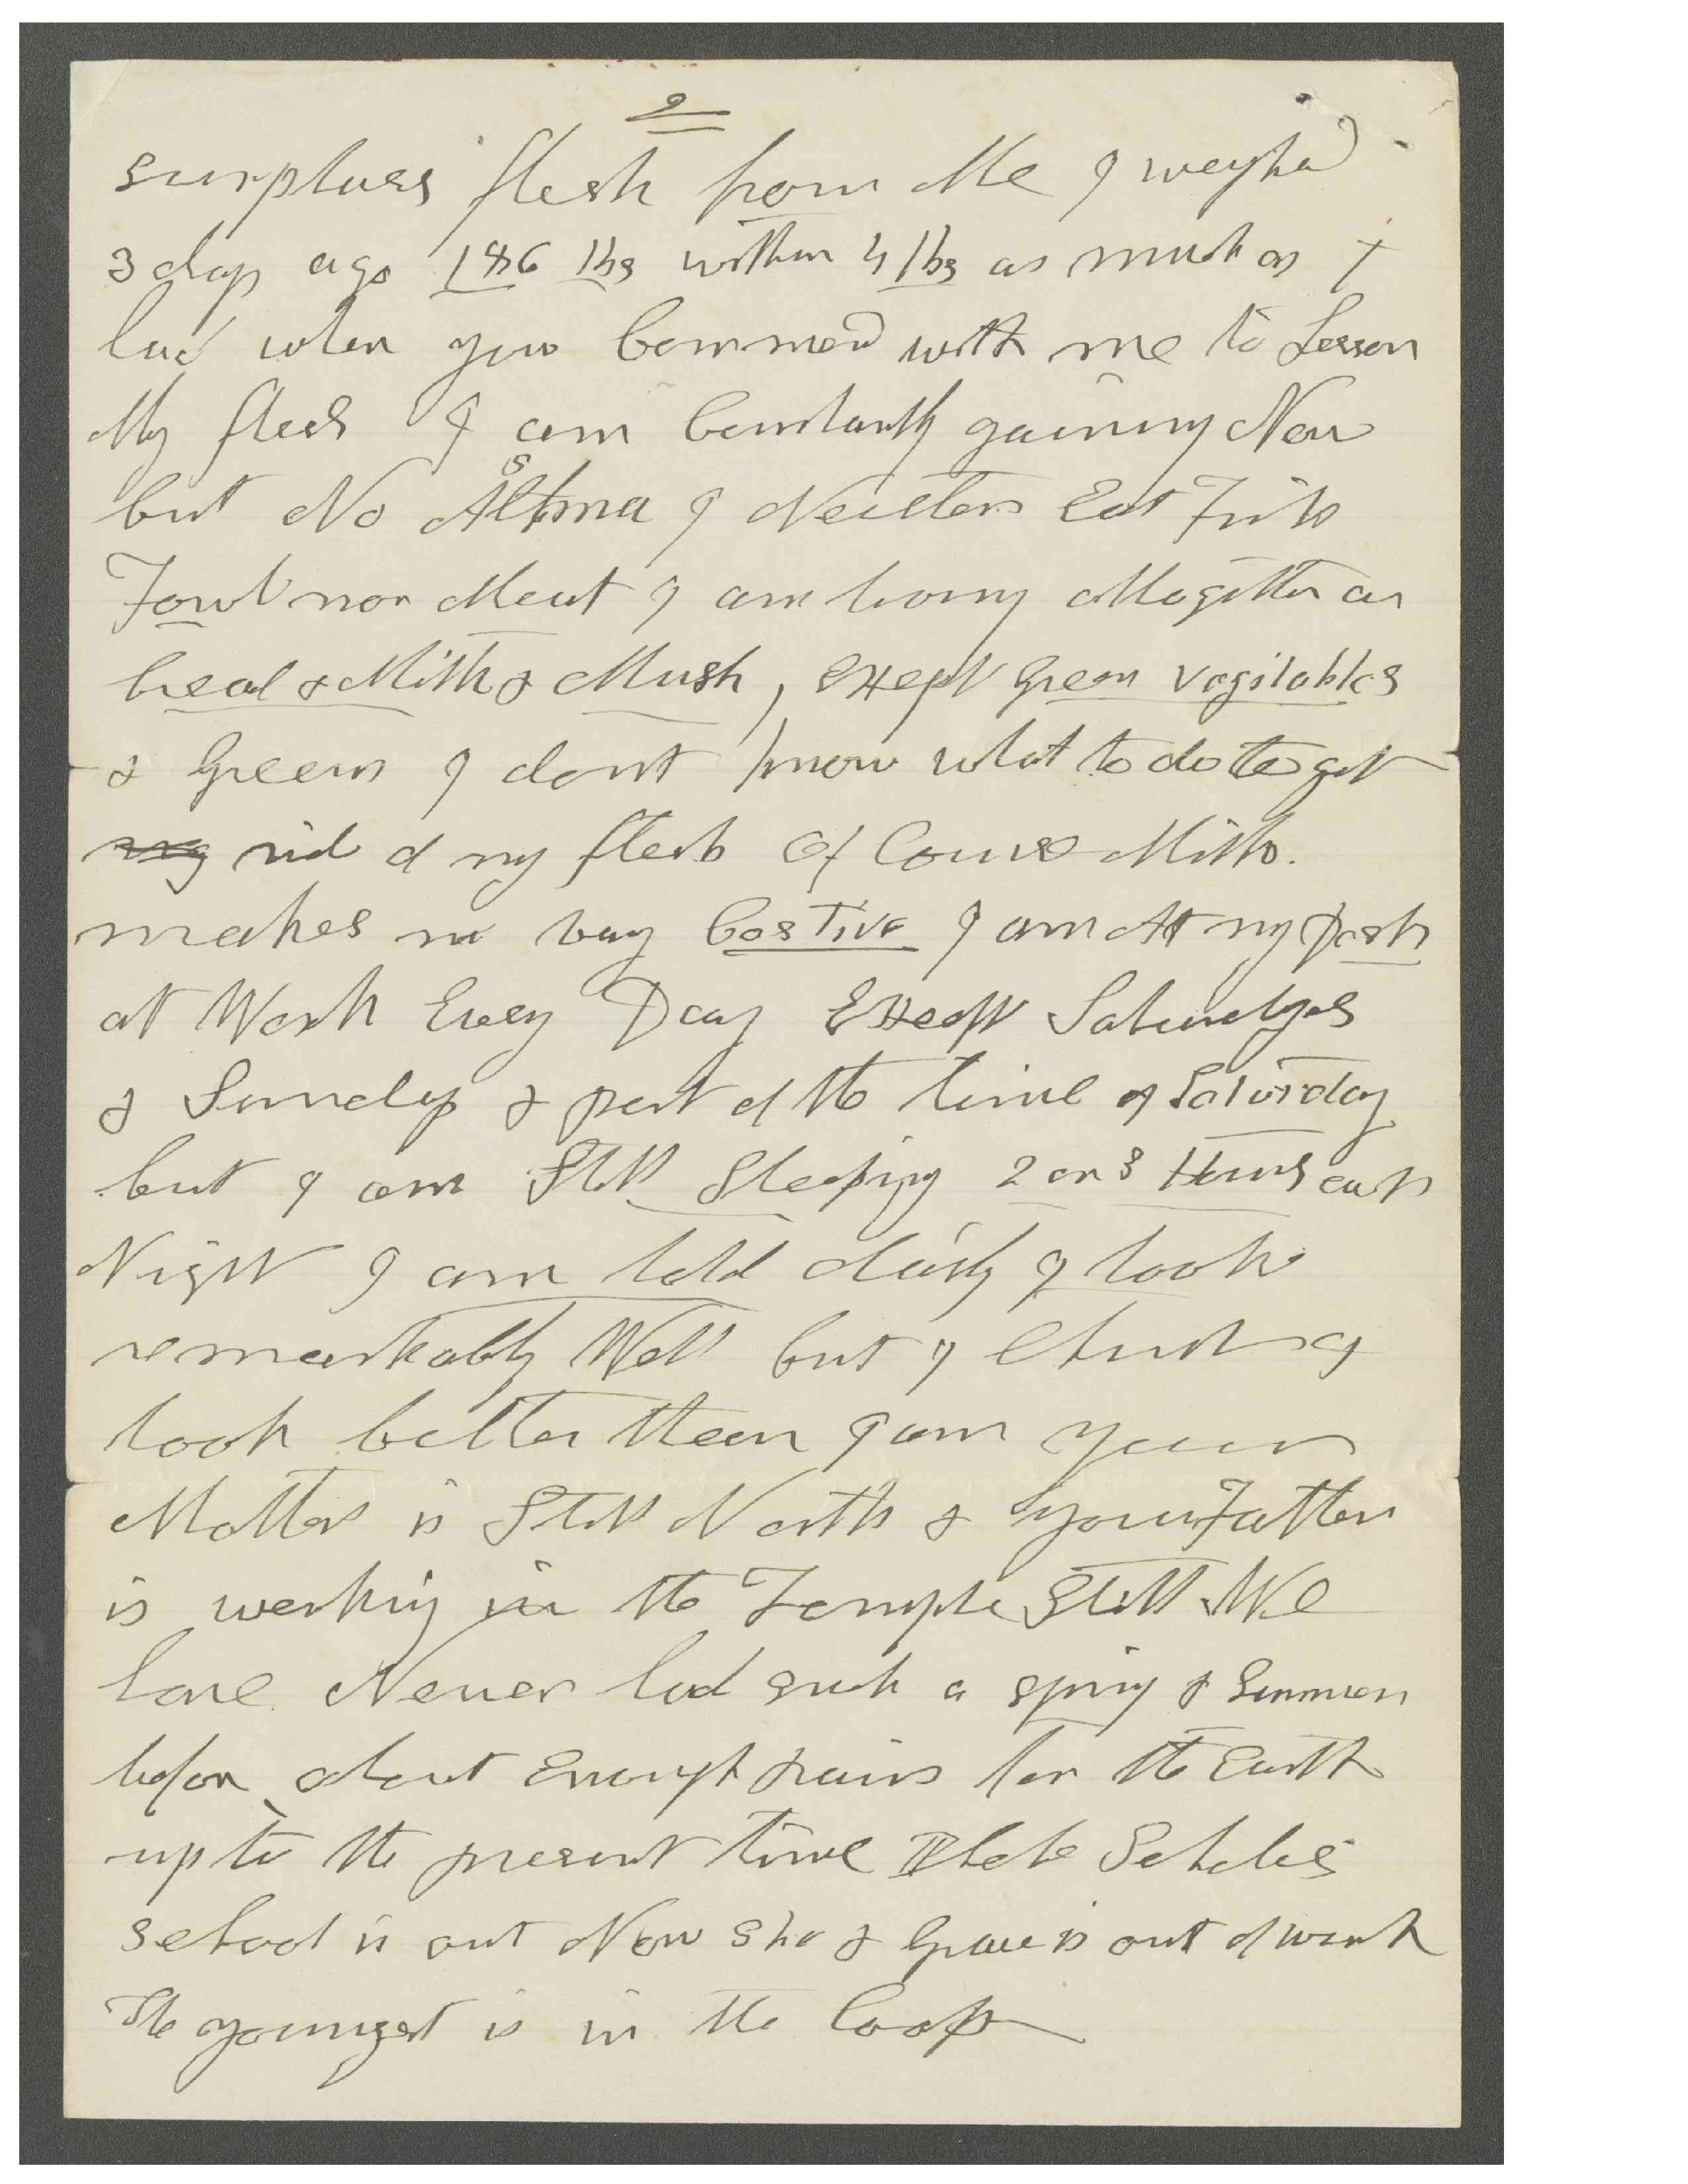 2
surpluss flesh from Me I weighed
3 days ago 186 lbs within 4 lbs as much as I
had when you Commenced with me to Lesson
My flesh I am Constantly gaining Now
but No Asthma I Neither Eat Fish
Fowl nor Meat I am living Altogether on
bread & Milk & Mush, Except Green vegitables
& Greens I dont know what to do to get
my rid of my flesh Of Course Milk.
makes me very Costive I am At my Desk
at Work Every Day Except Saturdys
& Sundays & part of the time of Saturday
but I am Still Sleeping 2 or 3 Hours each
Night I am told daily I look
remarkably Well but I think I
look better then I am your
Mother is Still North & your Father
is working in the Temple Still We
have Never had such a spring & Summer
before about Enough rains for the Earth
up to the present time
school is out Now She & Grace is out of work
The youngest is in the Coop